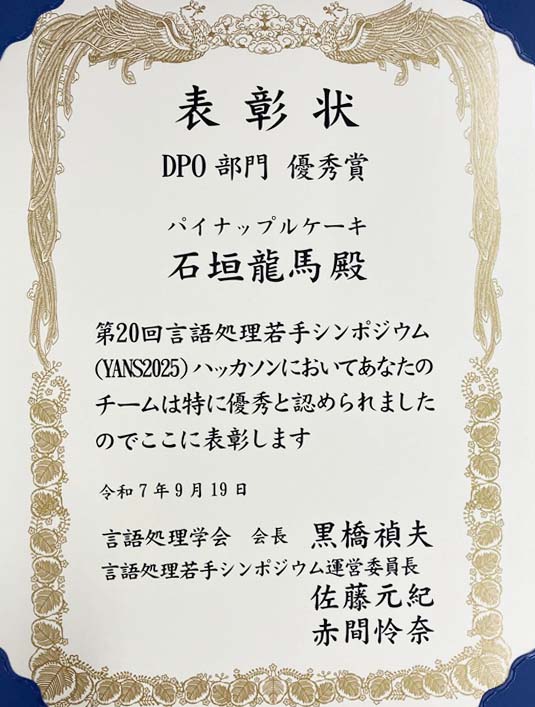 表彰状
DPO 部門 優秀賞
パイナップルケーキ
石垣龍馬殿
第20回言語処理若手シンポジウム
(YANS2025) ハッカソンにおいてあなたの
チームは特に優秀と認められました
のでここに表彰します
令和7年9月19日
言語処理学会 会長 黒橋禎夫
言語処理若手シンポジウム運営委員長
佐藤元紀
赤間怜奈